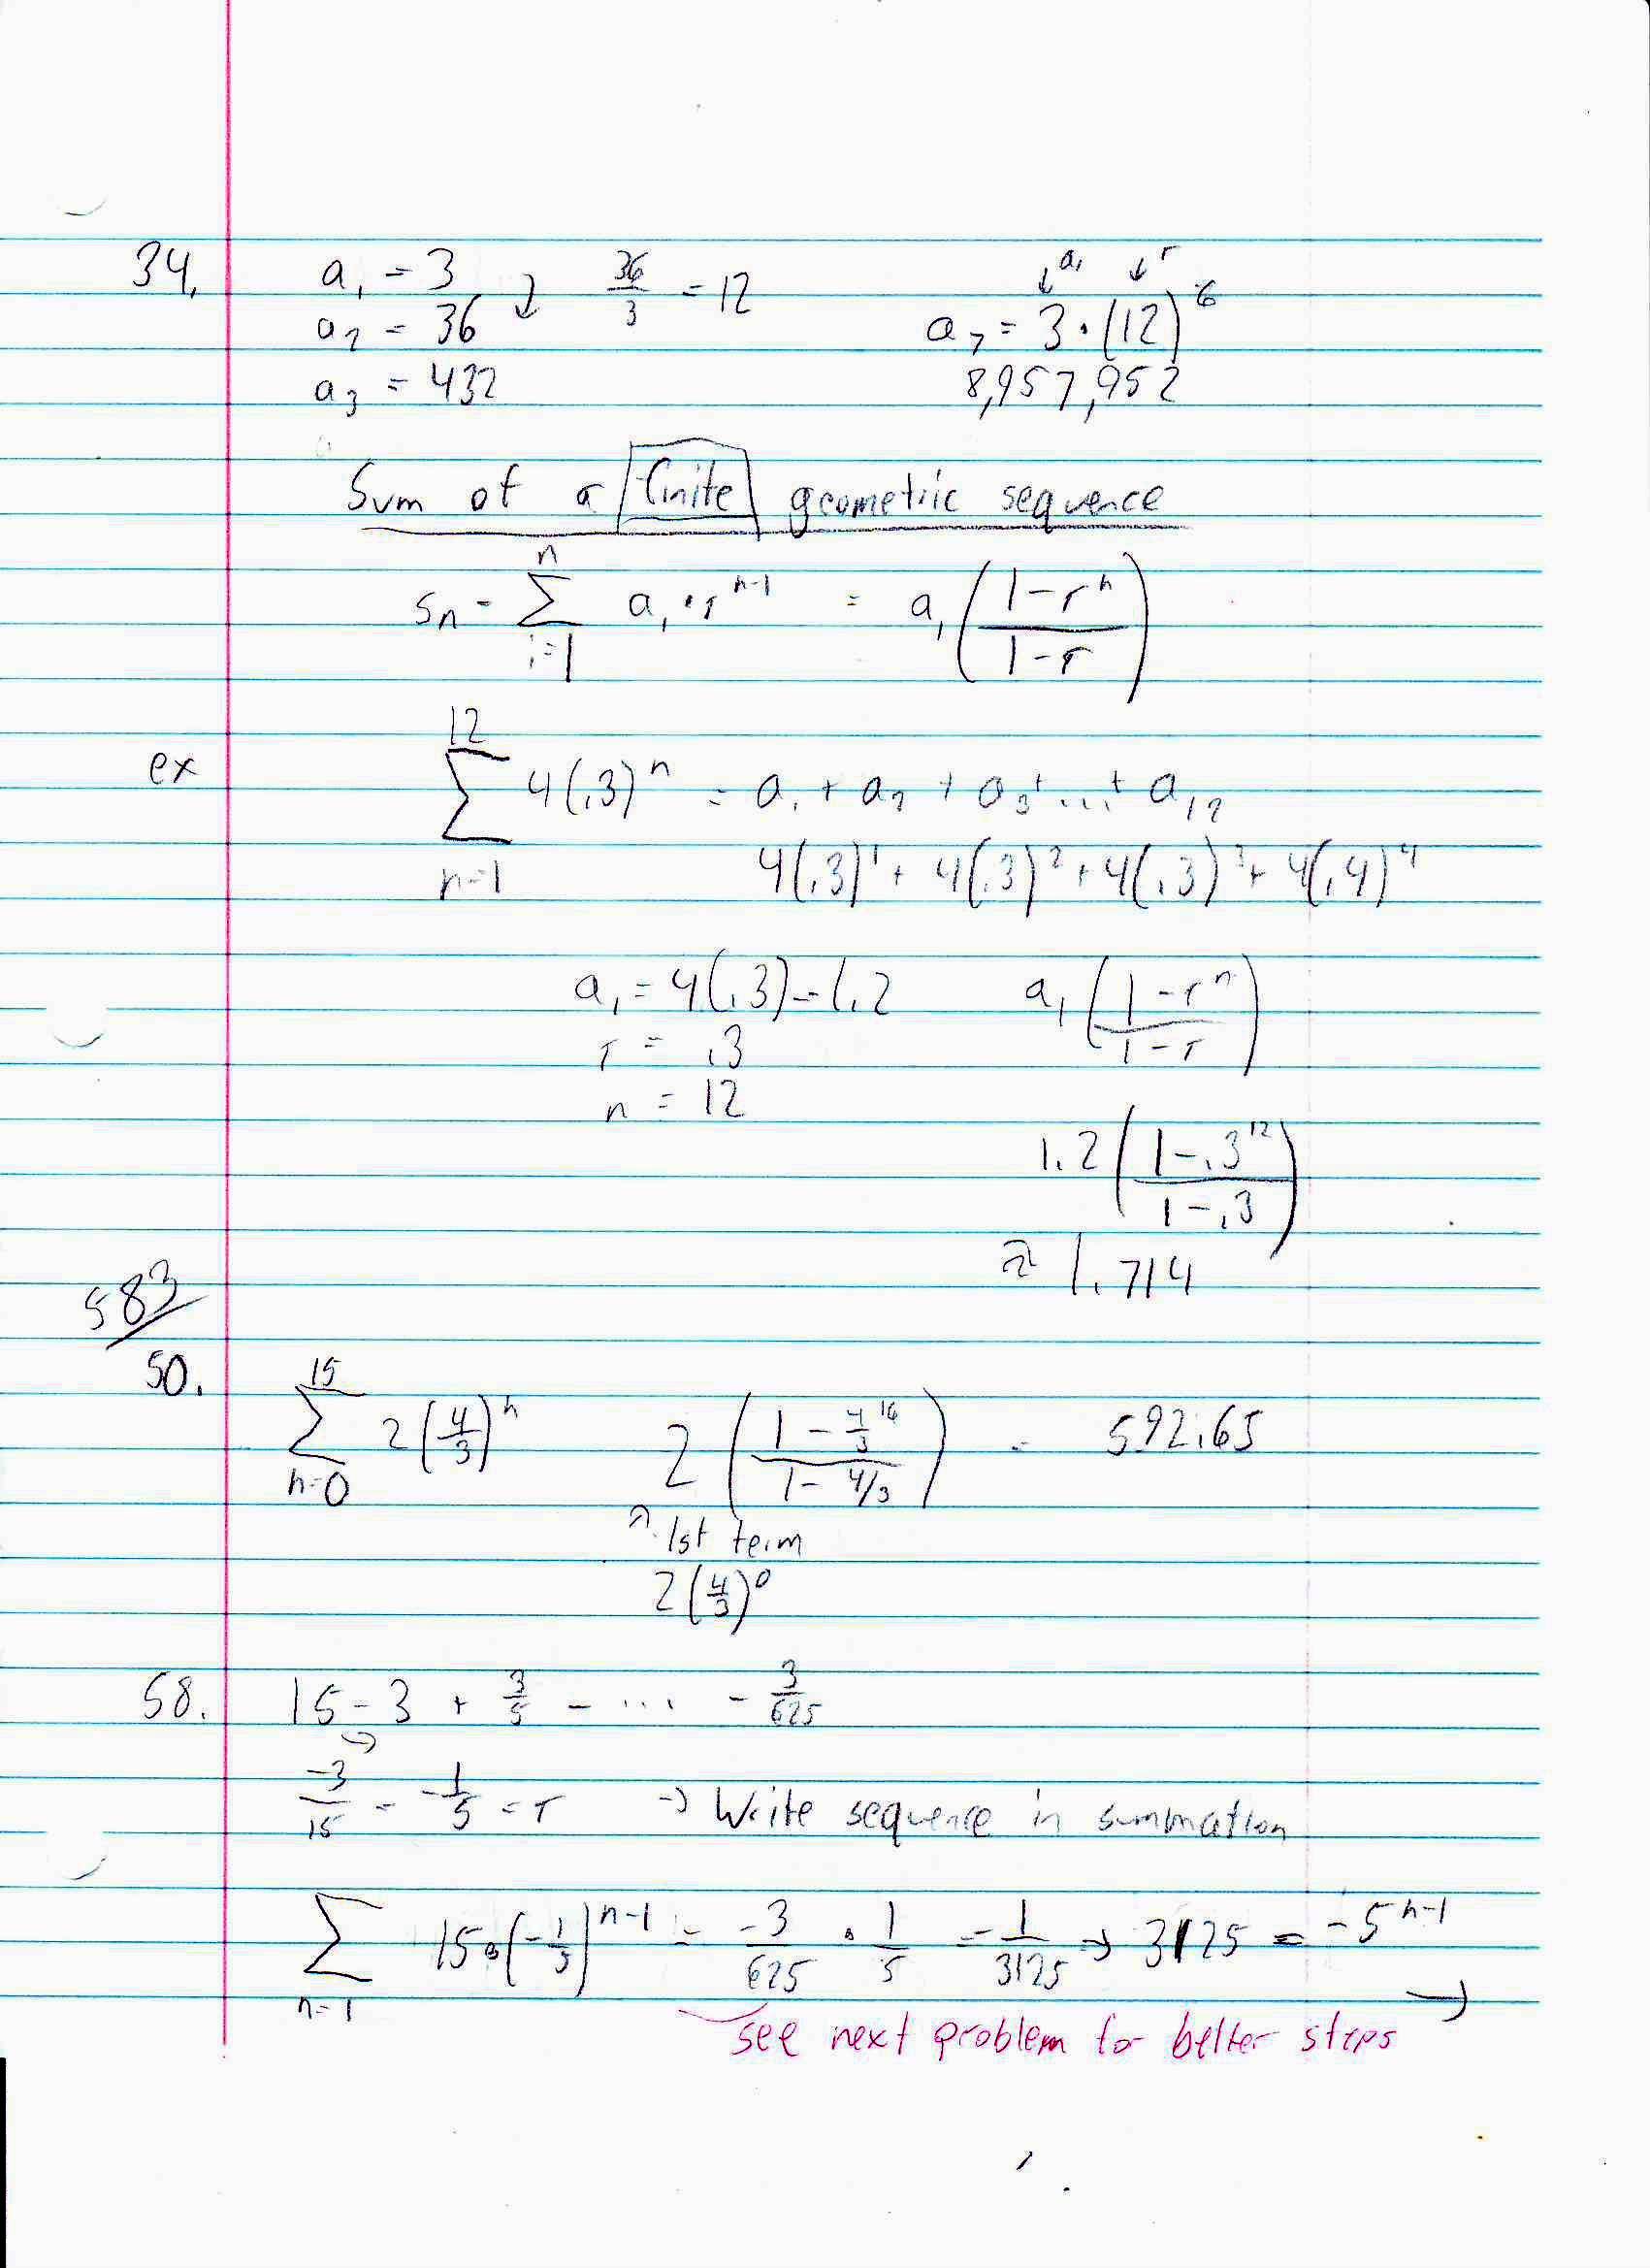 34. a₁ = 3 36/3 = 12 ↓a₁ ↓r
a₂ = 36 a₇ = 3 · (12)⁶
a₃ = 432 8,957,952
Sum of a finite geometric sequence
Sn = Σ n i=1 a₁ · r^(n-1) = a₁ ((1-r^n)/(1-r))
ex Σ 12 n=1 4(.3)^n = a₁ + a₂ + a₃ + ... + a₁₂
4(.3)¹ + 4(.3)² + 4(.3)³ + 4(.4)⁴
a₁ = 4(.3) = 1.2 a₁ ((1-r^n)/(1-r))
r = .3
n = 12
1.2 ((1-.3¹²)/(1-.3))
≈ 1.714
583
50. Σ 15 n=0 2(4/3)^n 2 ((1 - 4/3^16)/(1 - 4/3)) = 592.65
↗ 1st term
2(4/3)⁰
58. 15 - 3 + 3/5 - ... - 3/625
-3/15 = -1/5 = r → Write sequence in summation
Σ n=1 15·(-1/5)^(n-1) = -3/625 · 1/5 = -1/3125 → 3125 = -5^(n-1) →
see next problem for better steps